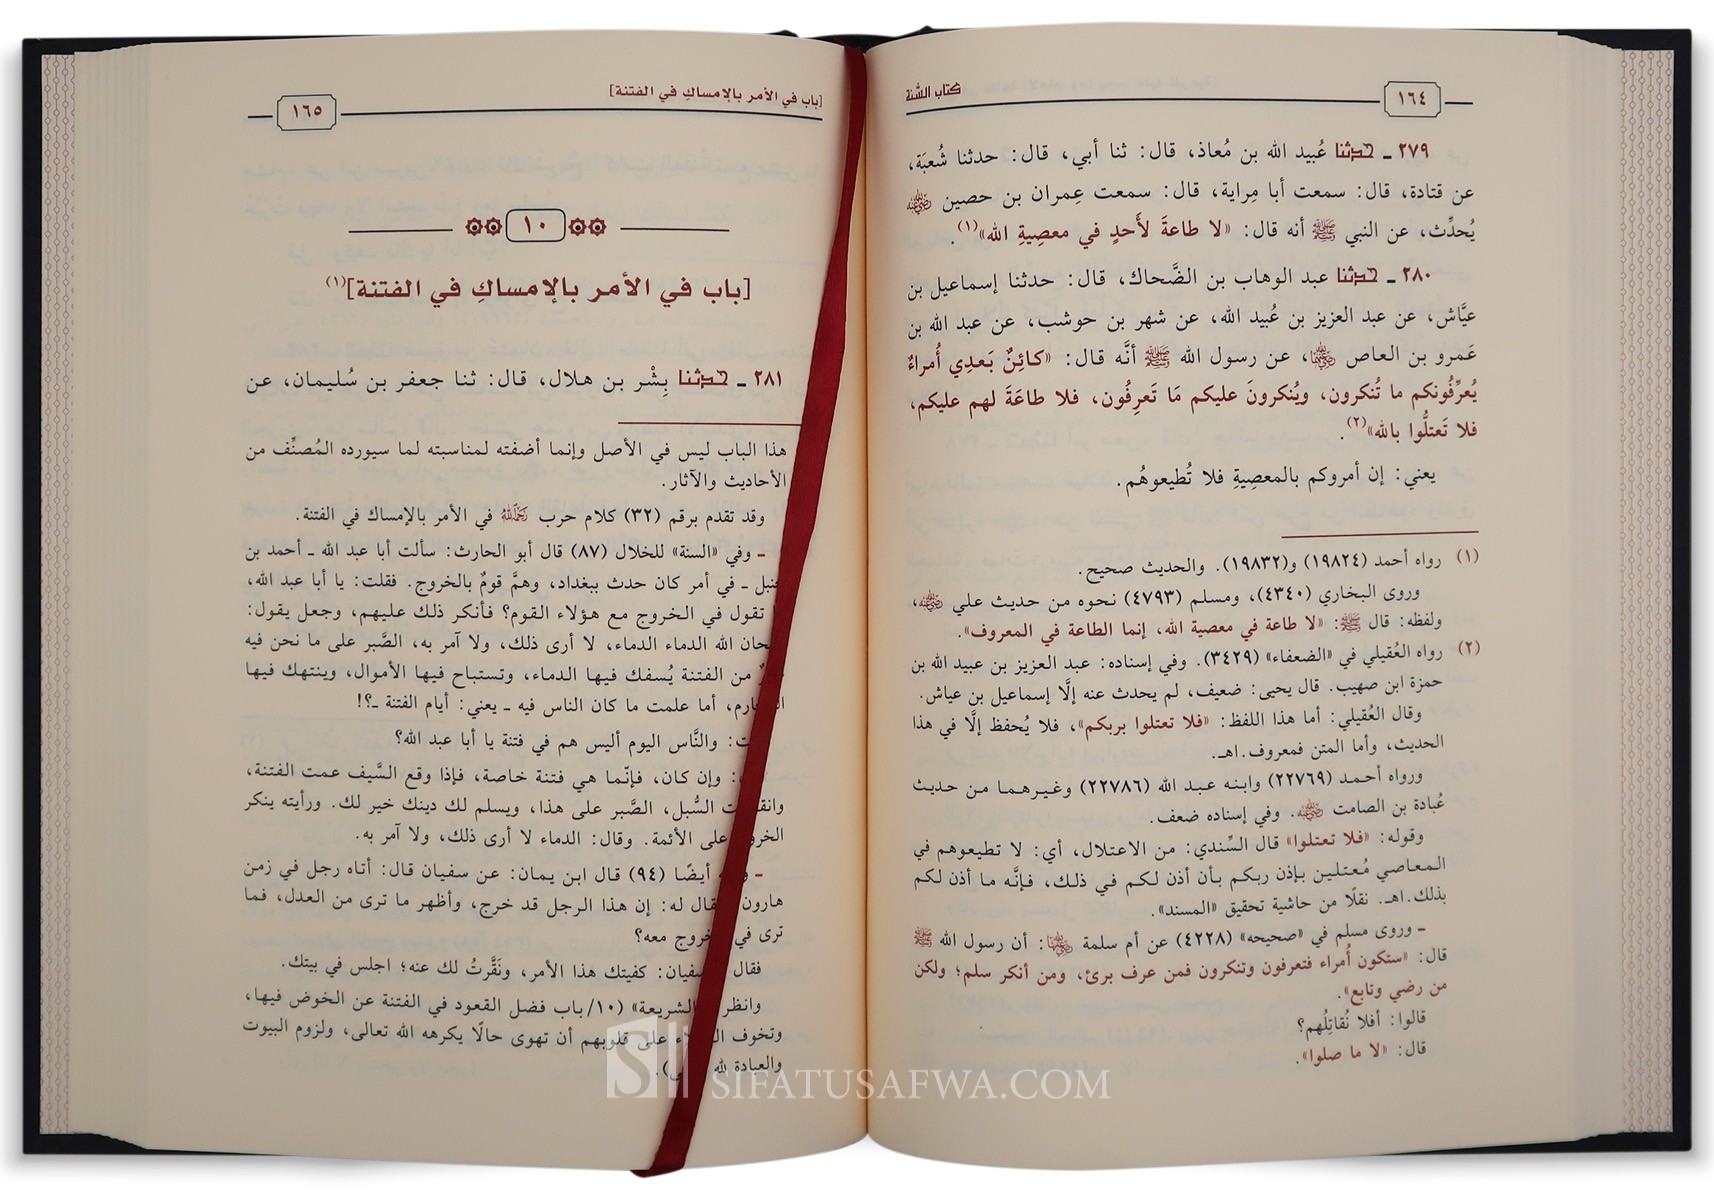 ١٦٤
كتاب السُّنة
٢٧٩ ـ حدثنا عُبيد الله بن مُعاذ، قال: ثنا أبي، قال: حدثنا شُعبَة،
عن قتادة، قال: سمعت أبا مِراية، قال: سمعت عِمران بن حصين رضي الله عنه
يُحدِّث، عن النبي ﷺ أنه قال: «لا طاعةَ لأَحدٍ في معصِيةِ الله»(١).
٢٨٠ ـ حدثنا عبد الوهاب بن الضَّحاك، قال: حدثنا إسماعيل بن
عيَّاش، عن عبد العزيز بن عُبيد الله، عن شهر بن حوشب، عن عبد الله بن
عَمرو بن العاص رضي الله عنهما، عن رسول الله ﷺ أنَّه قال: «كائِنٌ بَعدِي أُمراءُ
يُعرِّفُونكم ما تُنكرون، ويُنكرونَ عليكم مَا تَعرِفُون، فلا طاعَةَ لهم عليكم،
فلا تَعتلُّوا بالله»(٢).
يعني: إن أمروكم بالمعصِيةِ فلا تُطيعوهُم.
(١) رواه أحمد (١٩٨٢٤) و(١٩٨٣٢). والحديث صحيح.
وروى البخاري (٤٣٤٠)، ومسلم (٤٧٩٣) نحوه من حديث علي رضي الله عنه،
ولفظه: قال ﷺ: «لا طاعة في معصية الله، إنما الطاعة في المعروف».
(٢) رواه العُقيلي في «الضعفاء» (٣٤٢٩). وفي إسناده: عبد العزيز بن عبيد الله بن
حمزة ابن صهيب. قال يحيى: ضعيف، لم يحدث عنه إلَّا إسماعيل بن عياش.
وقال العُقيلي: أما هذا اللفظ: «فلا تعتلوا بربكم»، فلا يُحفظ إلَّا في هذا
الحديث، وأما المتن فمعروف.اهـ.
ورواه أحمد (٢٢٧٦٩) وابنه عبد الله (٢٢٧٨٦) وغيرهما من حديث
عُبادة بن الصامت رضي الله عنه. وفي إسناده ضعف.
وقوله: «فلا تعتلوا» قال السِّندي: من الاعتلال، أي: لا تطيعوهم في
المعاصي مُعتلين بإذن ربكم بأن أذن لكم في ذلك، فإنَّه ما أذن لكم
بذلك.اهـ. نقلًا من حاشية تحقيق «المسند».
ـ وروى مسلم في «صحيحه» (٤٢٢٨) عن أم سلمة رضي الله عنها: أن رسول الله ﷺ
قال: «ستكون أُمراء فتعرفون وتنكرون فمن عرف برئ، ومن أنكر سلم؛ ولكن
من رضي وتابع».
قالوا: أفلا نُقاتِلُهم؟
قال: «لا ما صلوا».
[باب في الأمر بالإمساكِ في الفتنة]
١٦٥
١٠
[باب في الأمر بالإمساكِ في الفتنة](١)
٢٨١ ـ حدثنا بِشْر بن هلال، قال: ثنا جعفر بن سُليمان، عن
هذا الباب ليس في الأصل وإنما أضفته لمناسبته لما سيورده المُصنِّف من
الأحاديث والآثار.
وقد تقدم برقم (٣٢) كلام حرب رحمه الله في الأمر بالإمساك في الفتنة.
ـ وفي «السنة» للخلال (٨٧) قال أبو الحارث: سألت أبا عبد الله ـ أحمد بن
حنبل ـ في أمر كان حدث ببغداد، وهمَّ قومٌ بالخروج. فقلت: يا أبا عبد الله،
ما تقول في الخروج مع هؤلاء القوم؟ فأنكر ذلك عليهم، وجعل يقول:
سبحان الله الدماء الدماء، لا أرى ذلك، ولا آمر به، الصَّبر على ما نحن فيه
من الفتنة يُسفك فيها الدماء، وتستباح فيها الأموال، وينتهك فيها
المحارم، أما علمت ما كان الناس فيه ـ يعني: أيام الفتنة ـ؟!
والنَّاس اليوم أليس هم في فتنة يا أبا عبد الله؟
وإن كان، فإنَّما هي فتنة خاصة، فإذا وقع السَّيف عمت الفتنة،
وانقطعت السُّبل، الصَّبر على هذا، ويسلم لك دينك خير لك. ورأيته ينكر
الخروج على الأئمة. وقال: الدماء لا أرى ذلك، ولا آمر به.
ـ وفيه أيضًا (٩٤) قال ابن يمان: عن سفيان قال: أتاه رجل في زمن
هارون فقال له: إن هذا الرجل قد خرج، وأظهر ما ترى من العدل، فما
ترى في الخروج معه؟
فقال سفيان: كفيتك هذا الأمر، ونَقَّرتُ لك عنه؛ اجلس في بيتك.
وانظر «الشريعة» (١٠/باب فضل القعود في الفتنة عن الخوض فيها،
وتخوف العقلاء على قلوبهم أن تهوى حالًا يكرهه الله تعالى، ولزوم البيوت
والعبادة لله تعالى).
SIFATUSAFWA.COM